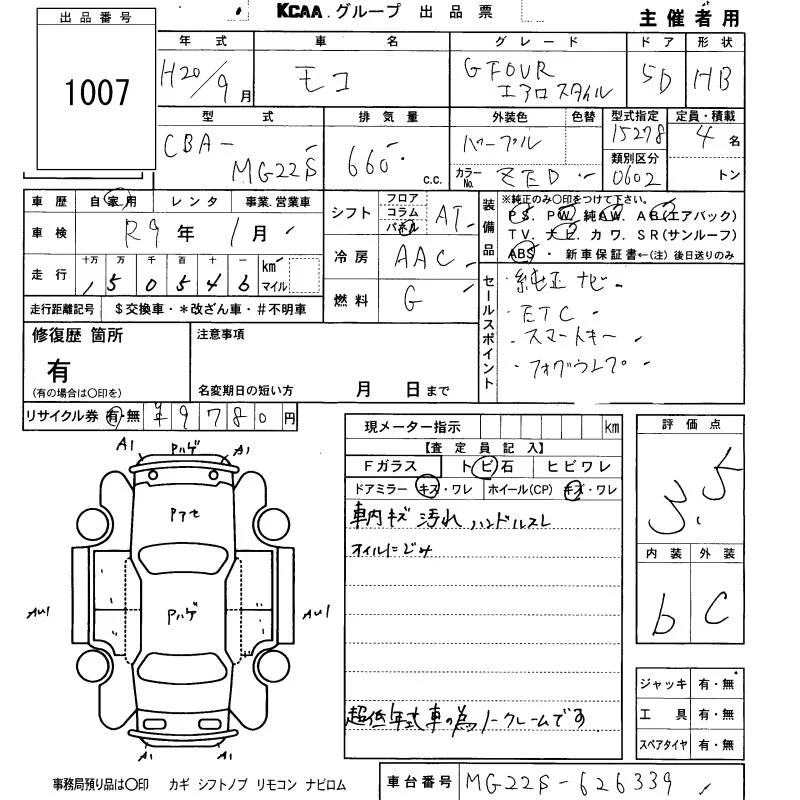 KCAA グループ 出品票
主催者用
出品番号
1007
年式 車名 グレード ドア 形状
H20/9月 モコ GFOUR エアロスタイル 5D HB
型式 排気量 外装色 色替 型式指定 定員・積載
CBA-MG22S 660 c.c. パープル 15278 4名
カラーNo. ZED 類別区分 0602 トン
車歴 自家用 レンタ 事業.営業車
車検 R9年1月
走行 十万 万 千 百 十 一
150546 km マイル
走行距離記号 $交換車・*改ざん車・#不明車
シフト フロア コラム パネル AT
冷房 AAC
燃料 G
装備品 ※純正のみ○印をつけて下さい。
PS. PW. 純AW. AB(エアバック)
TV. ナビ カワ. SR(サンルーフ)
ABS・新車保証書←(注)後日送りのみ
セールスポイント
・純正ナビ
・ETC
・スマートキー
・フォグランプ
修復歴 箇所
有
(有の場合は○印を)
注意事項
名変期日の短い方 月 日まで
リサイクル券 有・無 ¥9780円
現メーター指示 km
【査定員記入】
Fガラス トビ石 ヒビワレ
ドアミラー キズ・ワレ ホイール(CP) キズ・ワレ
車内キズ 汚れ ハンドルスレ
オイルにじみ
超低年式車の為ノークレームです
評価点
3.5
内装 外装
b C
ジャッキ 有・無
工具 有・無
スペアタイヤ 有・無
A1 Pハゲ A1
Pアセ
AU1 Pハゲ AU1
A1 A1
事務局預り品は○印 カギ シフトノブ リモコン ナビロム
車台番号 MG22S-626339